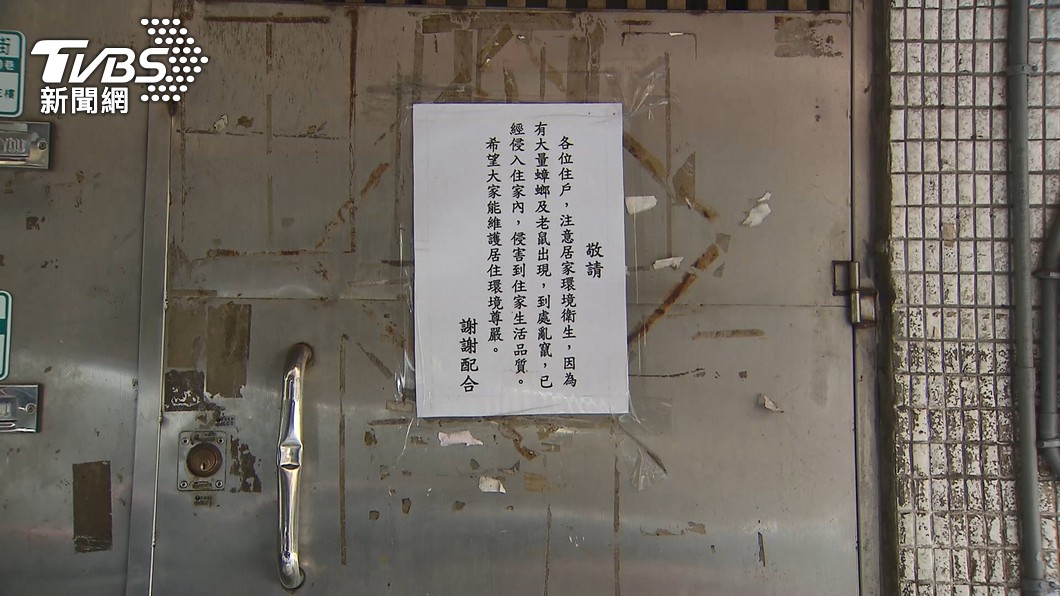 TVBS
新聞網
街
巷
樓
敬請
各位住戶，注意居家環境衛生，因為
有大量蟑螂及老鼠出現，到處亂竄，已
經侵入住家內，侵害到住家生活品質。
希望大家能維護居住環境尊嚴。
謝謝配合